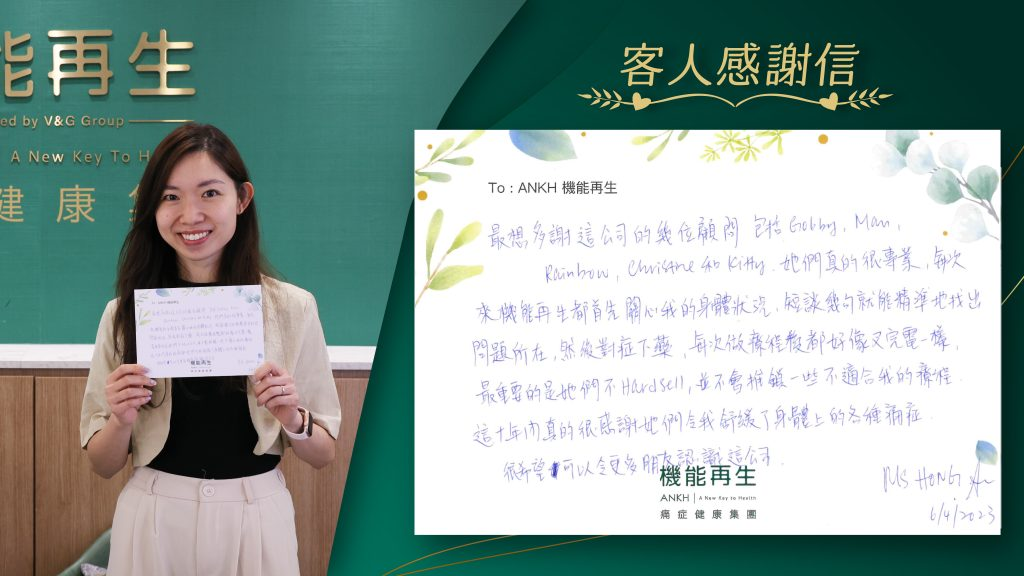 能再生
ed by V&G Group
A New Key To H
健康集
客人感謝信
To : ANKH 機能再生
最想多謝這公司的幾位顧問 包括 Gobby, Man,
Rainbow, Christine 和 Kitty. 她們真的很專業, 每次
來機能再生都首先關心我的身體狀況, 短談幾句就能精準地找出
問題所在, 然後對症下藥, 每次做療程後都好像叉完電一樣,
最重要的是她們不 Hardsell, 並不會推銷一些不適合我的療程.
這十年內真的很感謝她們令我舒緩了身體上的各種痛症.
很希望可以令更多朋友認識這公司.
機能再生
ANKH | A New Key to Health
痛症健康集團
MS HONG
6/4/2023